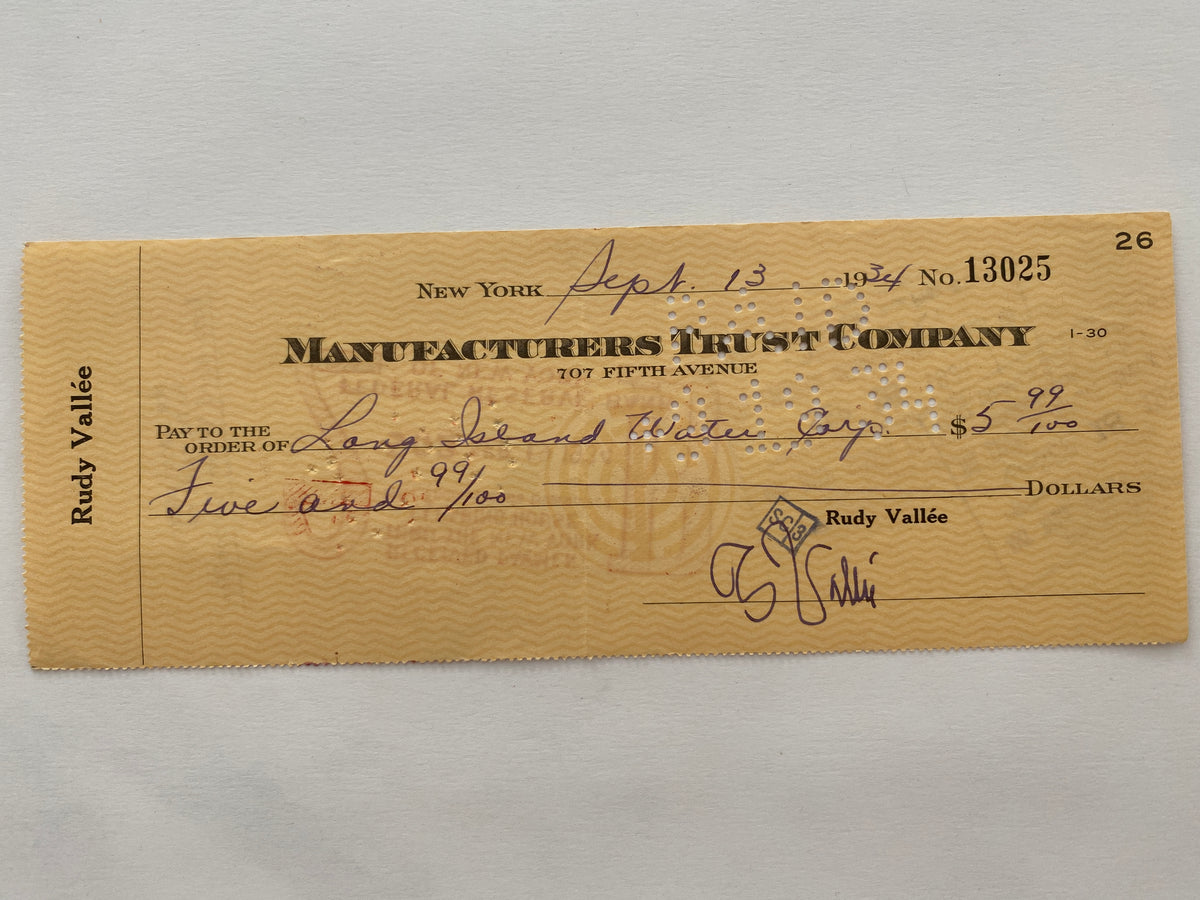 26
New York Sept. 13 1934 No. 13025
MANUFACTURERS TRUST COMPANY 1-30
707 FIFTH AVENUE
PAY TO THE ORDER OF Long Island Water Corp. $5 99/100
Five and 99/100 DOLLARS
Rudy Vallée
Rudy Vallée
R Vallée
SS3
PAID